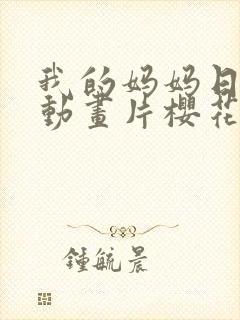 我的妈妈日
動畫片櫻花
鍾毓晨